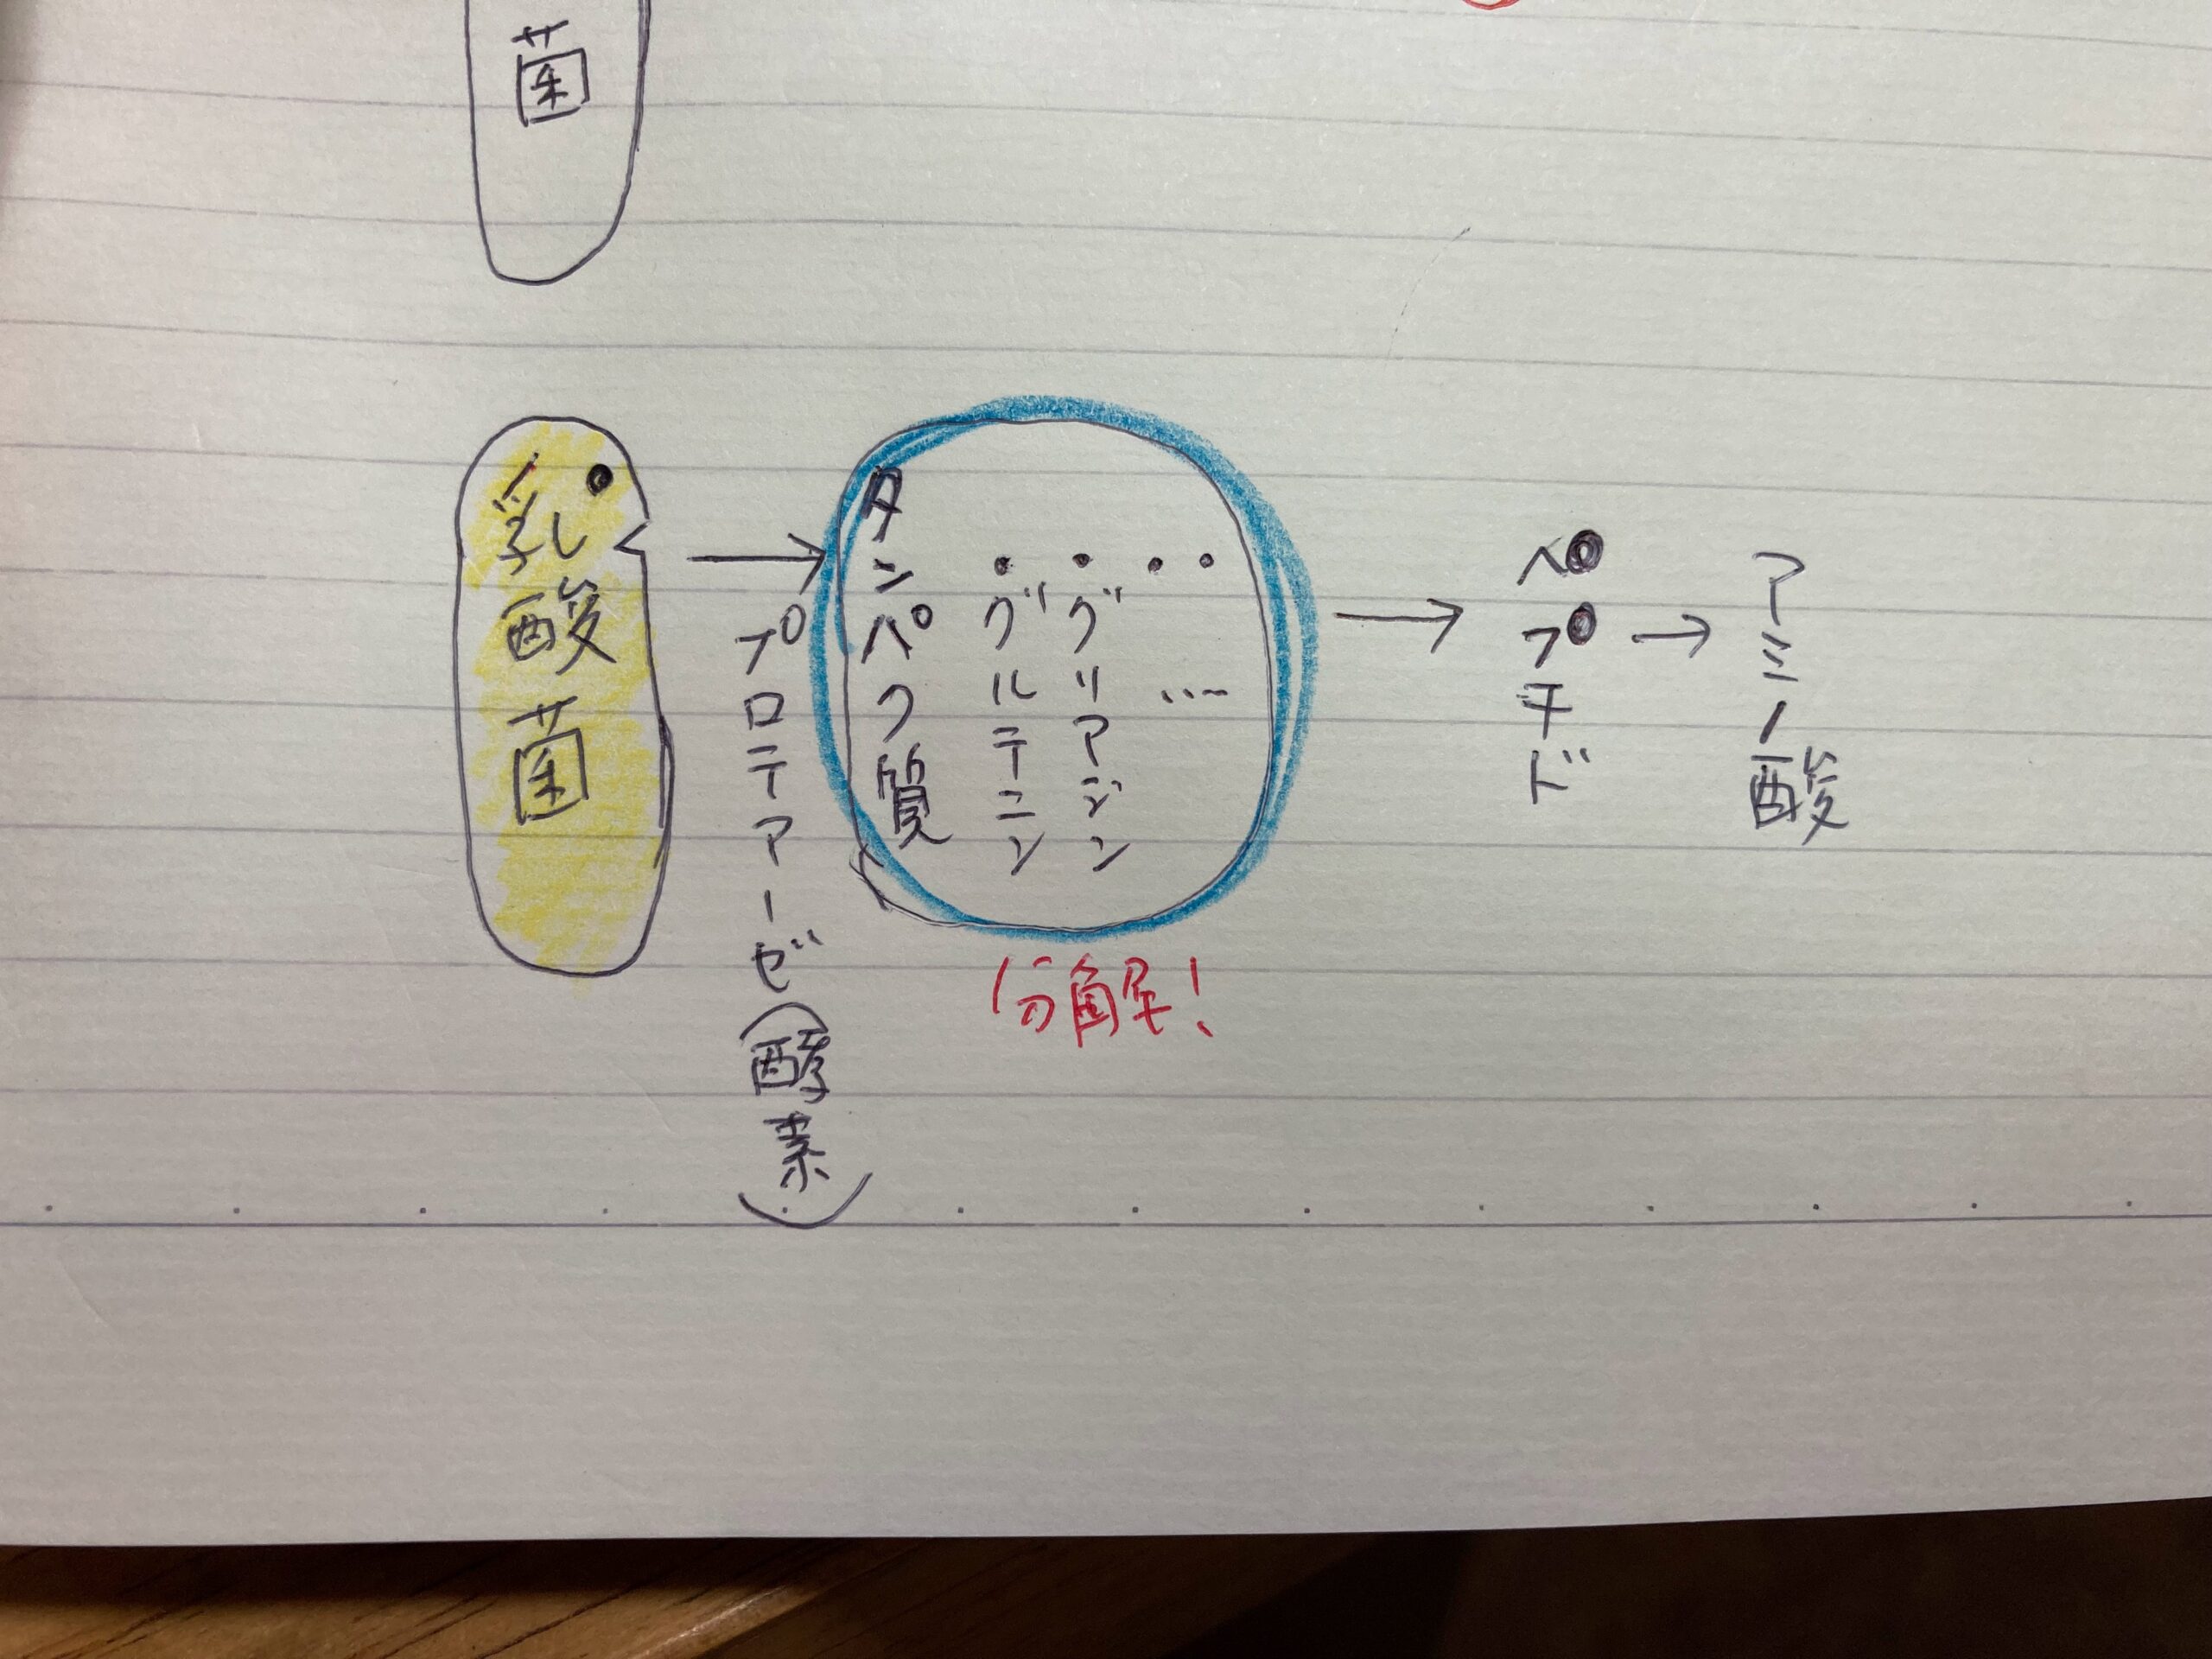 菌
乳酸菌
プロテアーゼ(酵素)
タンパク質
・グルテニン
・グリアジン
・・…
分解!
ペプチド
アミノ酸